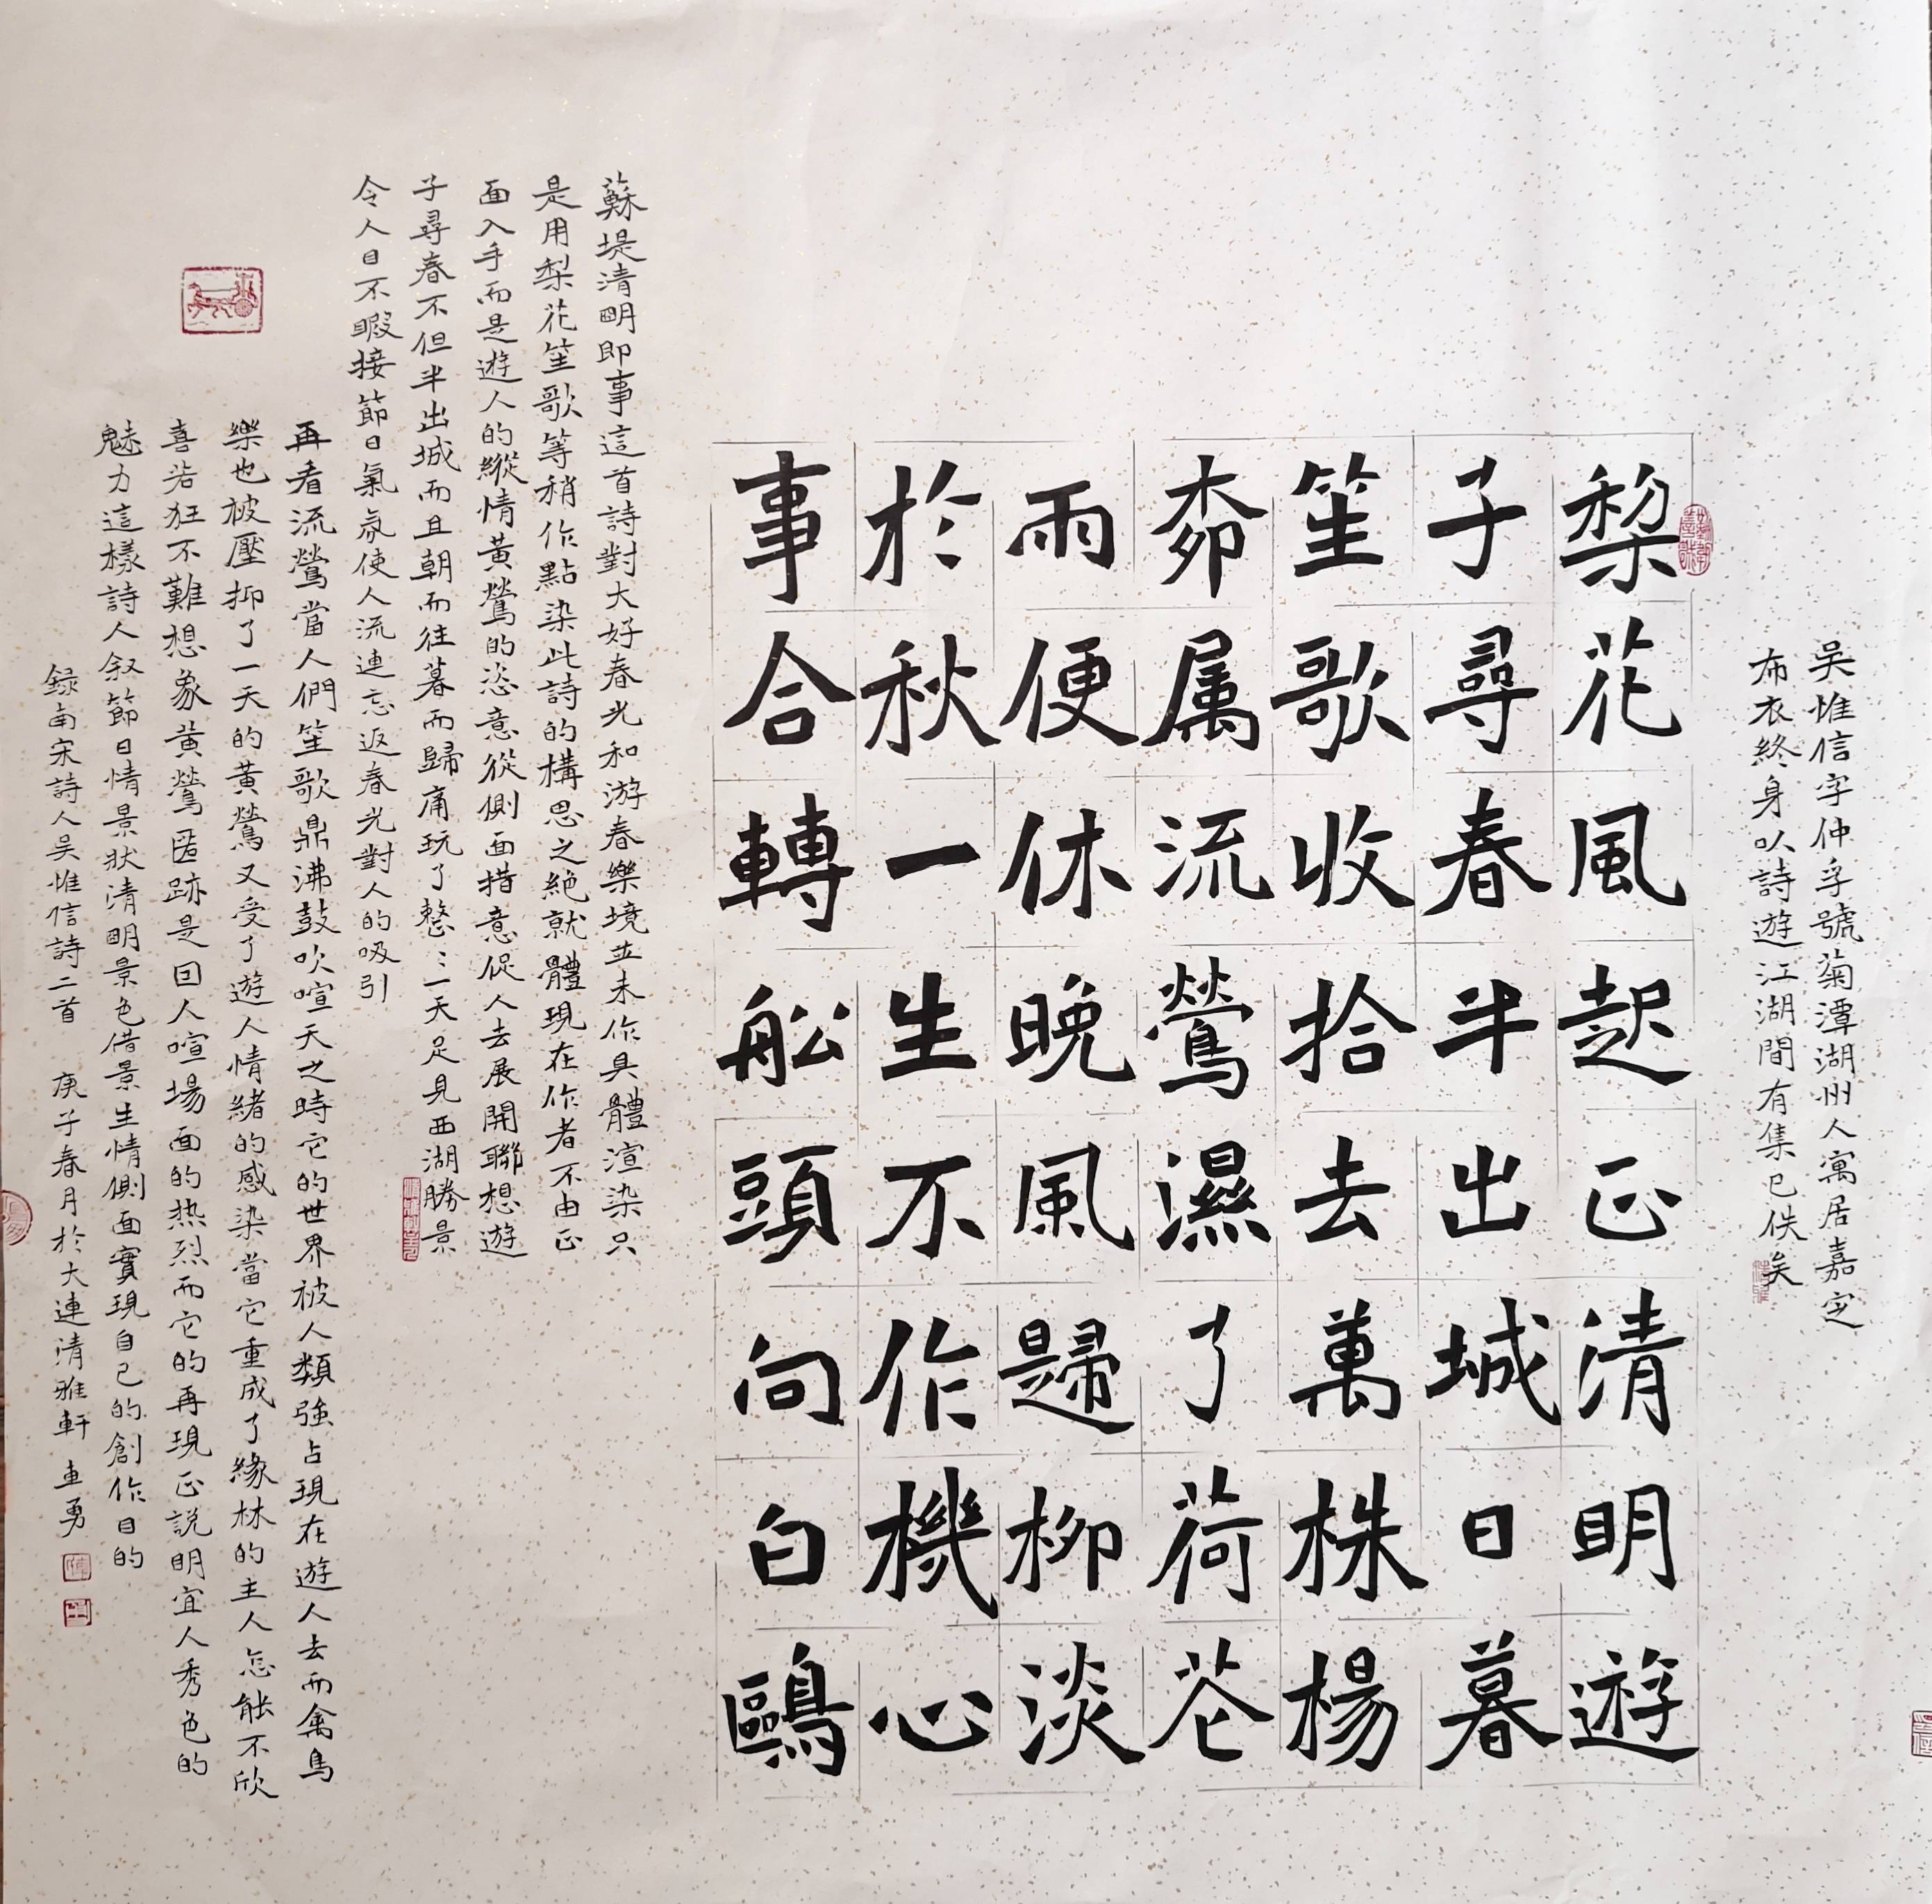 吳惟信字仲孚號菊潭湖州人寓居嘉定
布衣終身以詩遊江湖間有集已佚矣
梨花風起正清明遊
子尋春半出城日暮
笙歌收拾去萬株楊
桺属流鶯濕了荷花
雨便休晚風歸柳淡
於秋一生不作機心
事合轉船頭向白鷗
蘇堤清明即事這首詩對大好春光和游春樂境並未作具體渲染只
是用梨花笙歌等稍作點染此詩的構思之絶就體現在作者不由正
面入手而是遊人的縱情黃鶯的恣意從側面措意促人去展開聯想遊
子尋春不但半出城而且朝而往暮而歸痛玩了整：一天足見西湖勝景
令人目不暇接節日氣氛使人流連忘返春光對人的吸引
再看流鶯當人們笙歌鼎沸鼓吹喧天之時它的世界被人類強占現在遊人去而禽鳥
樂也被壓抑了一天的黃鶯又受了遊人情緒的感染當它重成了緣林的主人怎能不欣
喜若狂不難想象黃鶯匿跡是因人喧場面的热烈而它的再現正説明宜人秀色的
魅力這樣詩人叙節日情景狀清明景色借景生情側面實現自己的創作目的
録南宋詩人吳惟信詩二首 庚子春月於大連清雅軒 車勇